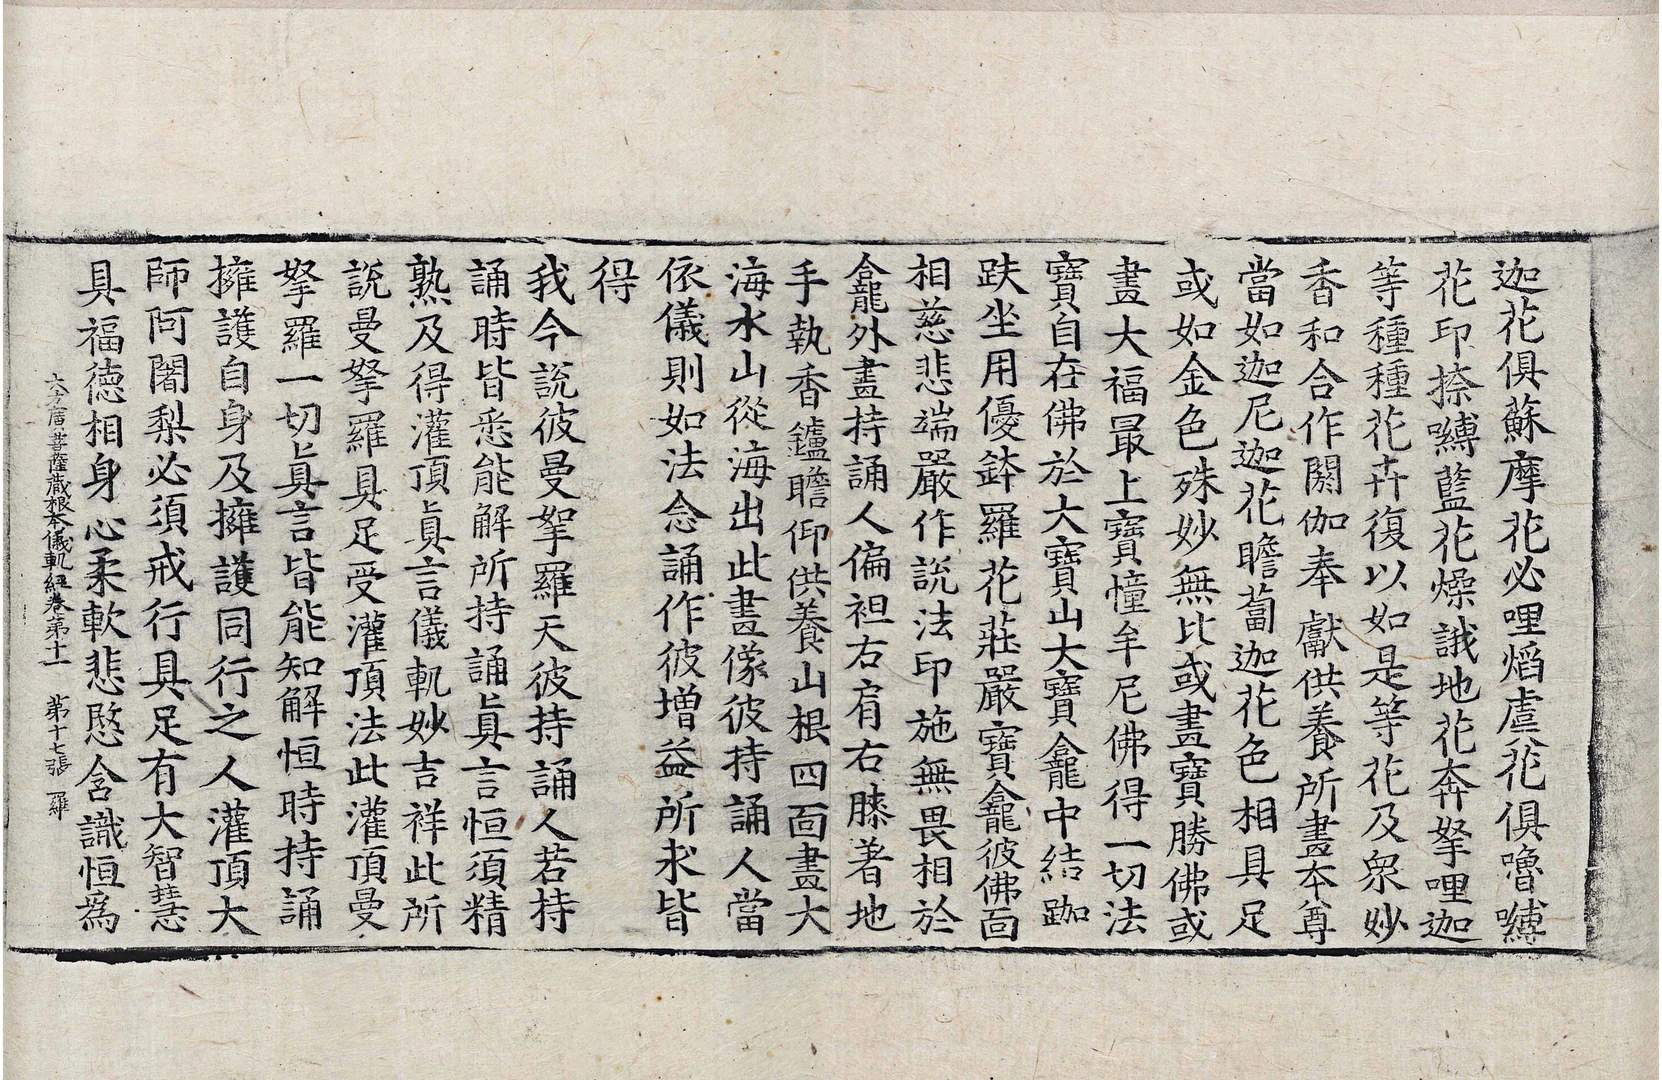 迦花俱蘇摩花必哩焰虗花俱嚕嚩
花印捺嚩藍花燥誐地花奔拏哩迦
等種種花卉復以如是等花及眾妙
香和合作閼伽奉獻供養所畫本尊
當如迦尼迦花瞻蔔迦花色相具足
或如金色殊妙無比或畫寶勝佛或
畫大福最上寶幢牟尼佛得一切法
寶自在佛於大寶山大寶龕中結跏
趺坐用優鉢羅花莊嚴寶龕彼佛面
相慈悲端嚴作說法印施無畏相於
龕外畫持誦人偏袒右肩右膝著地
手執香鑪瞻仰供養山根四面畫大
海水山從海出此畫像彼持誦人當
依儀則如法念誦作彼增益所求皆
得
我今說彼曼拏羅天彼持誦人若持
誦時皆悉能解所持誦眞言恒須精
熟及得灌頂眞言儀軌妙吉祥此所
說曼拏羅具足受灌頂法此灌頂曼
拏羅一切眞言皆能知解恒時持誦
擁護自身及擁護同行之人灌頂大
師阿闍梨必須戒行具足有大智慧
具福德相身心柔軟悲愍含識恒爲
大方廣菩薩藏根本儀軌經卷第十一 第十七張 羅